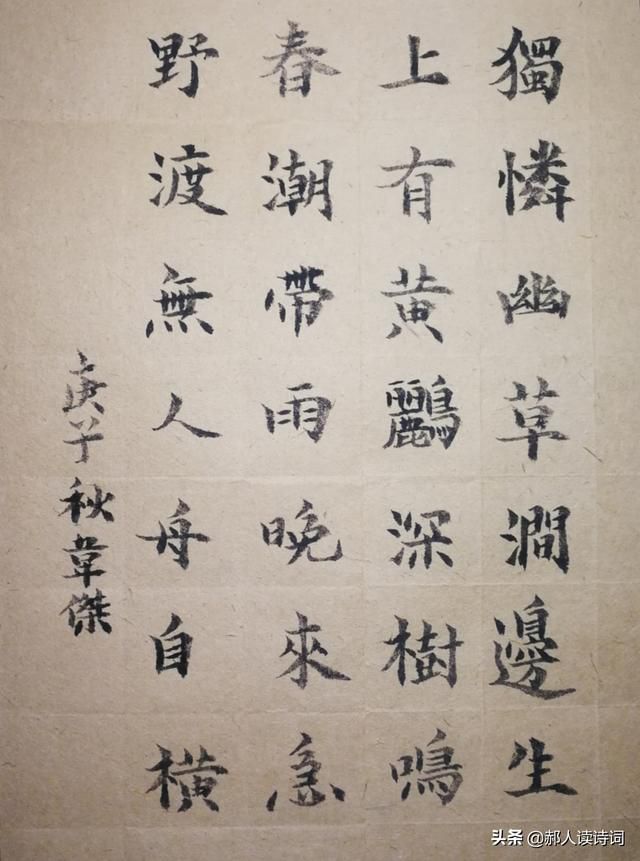 獨憐幽草澗邊生
上有黄鸝深樹鳴
春潮帶雨晚來急
野渡無人舟自橫
庚子秋韋傑
头条 @郝人读诗词